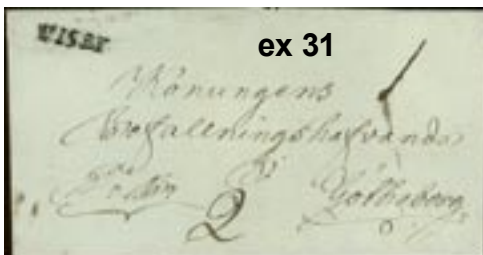 WISBY
ex 31
Konungens
Befallningshafvande
i
Götheborg
2